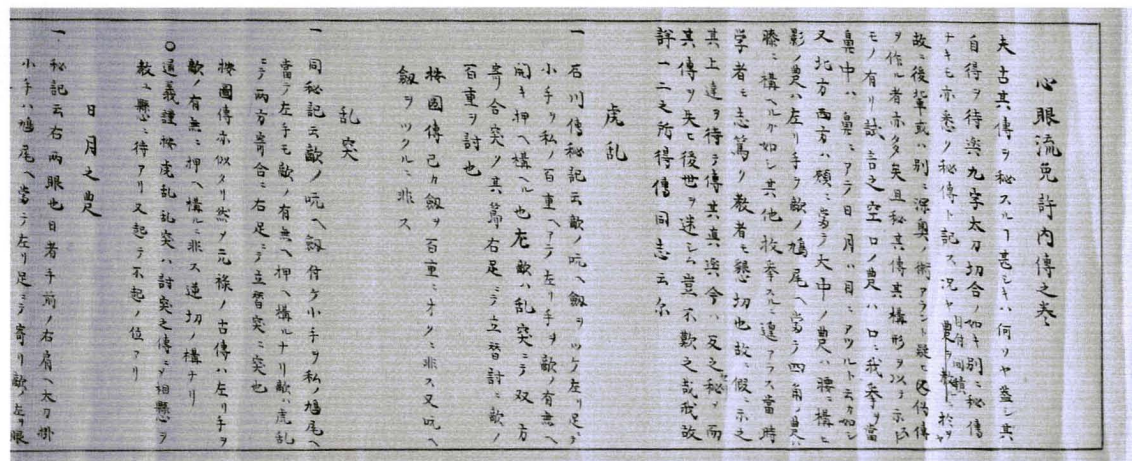 心眼流免許内傳之巻
夫古其傳ヲ秘スルヿ甚シキハ何ソヤ盖シ其
自得ヲ待楽九字太刀切合ノ如キ別ニ秘傳
ナキモ亦悉ク秘傳ト記ス况ヤ目付間積曲尺ヲ教ルニ於ヲヤ
故ニ後輩或ハ別ニ深奥ノ術アラント疑ヒ傳
ヲ作ル者亦多矣且秘其傳其構形ヲ以テ示
モノ有リ試ニ言之空ロノ曲尺ハ口ニ我拳ヲ當
鼻中ハ鼻ニアテ日月ハ目ニアツルト云カ如シ
又北方西方ハ頬ニ當テ大中ノ曲尺ハ腰ニ構ヒ
影ノ曲尺ハ左リ手ヲ敵ノ鳩尾ヘ當テ四角ノ曲尺ハ
膝ニ構ヘルカ如シ其他枚挙スルニ遑アラス當時
学者モ志篤ク教者モ懇切也故ニ假ニ示之
其上達ヲ待テ傳其真奥今ハ反之秘シ而
其傳ヲ失ヒ後世ヲ迷シム豈不歎之哉我故
詳一二之所得傳同志云尓
虎乱
一 石川傳秘記云敵ノ吭ヘ劔ヲツケ左リ足ヲ
小手ヲ私ノ百重ヘアテ左リ手ヲ敵ノ有無ヘ
開キ押ヘ構ヘル也尤敵ハ乱突ニテ双方
寄合突ク其節右足ニテ立替討ニ敵ノ
百重ヲ討也
按國傳己カ劔ヲ百重ニオクニ非ス又吭ヘ
劔ヲツクルニ非ス
乱突
一 同秘記云敵ノ吭ヘ劔付ケ小手ヲ私ノ鳩尾ヘ
當テ左手モ敵ノ有無ヘ押ヘ構ルナリ敵ハ虎乱
ニテ両方寄合ニ右足ニテ立替突ニ突也
按國傳亦似タリ然ヲ元禄ノ古傳ハ左リ手ヲ
敵ノ有無ニ押ヘ構ルニ非ス逆切ノ構ナリ
○道義謹按虎乱乱突ハ討突之傳ニテ相懸ヲ
教ユ懸ニ待アリ又起テ不起ノ位アリ
日月之曲尺
一 秘記云右両眼也日者手前ノ右肩ヘ太刀掛
小手ハ鳩尾ヘ當テ左リ足ニテ寄リ敵ノ左リ眼